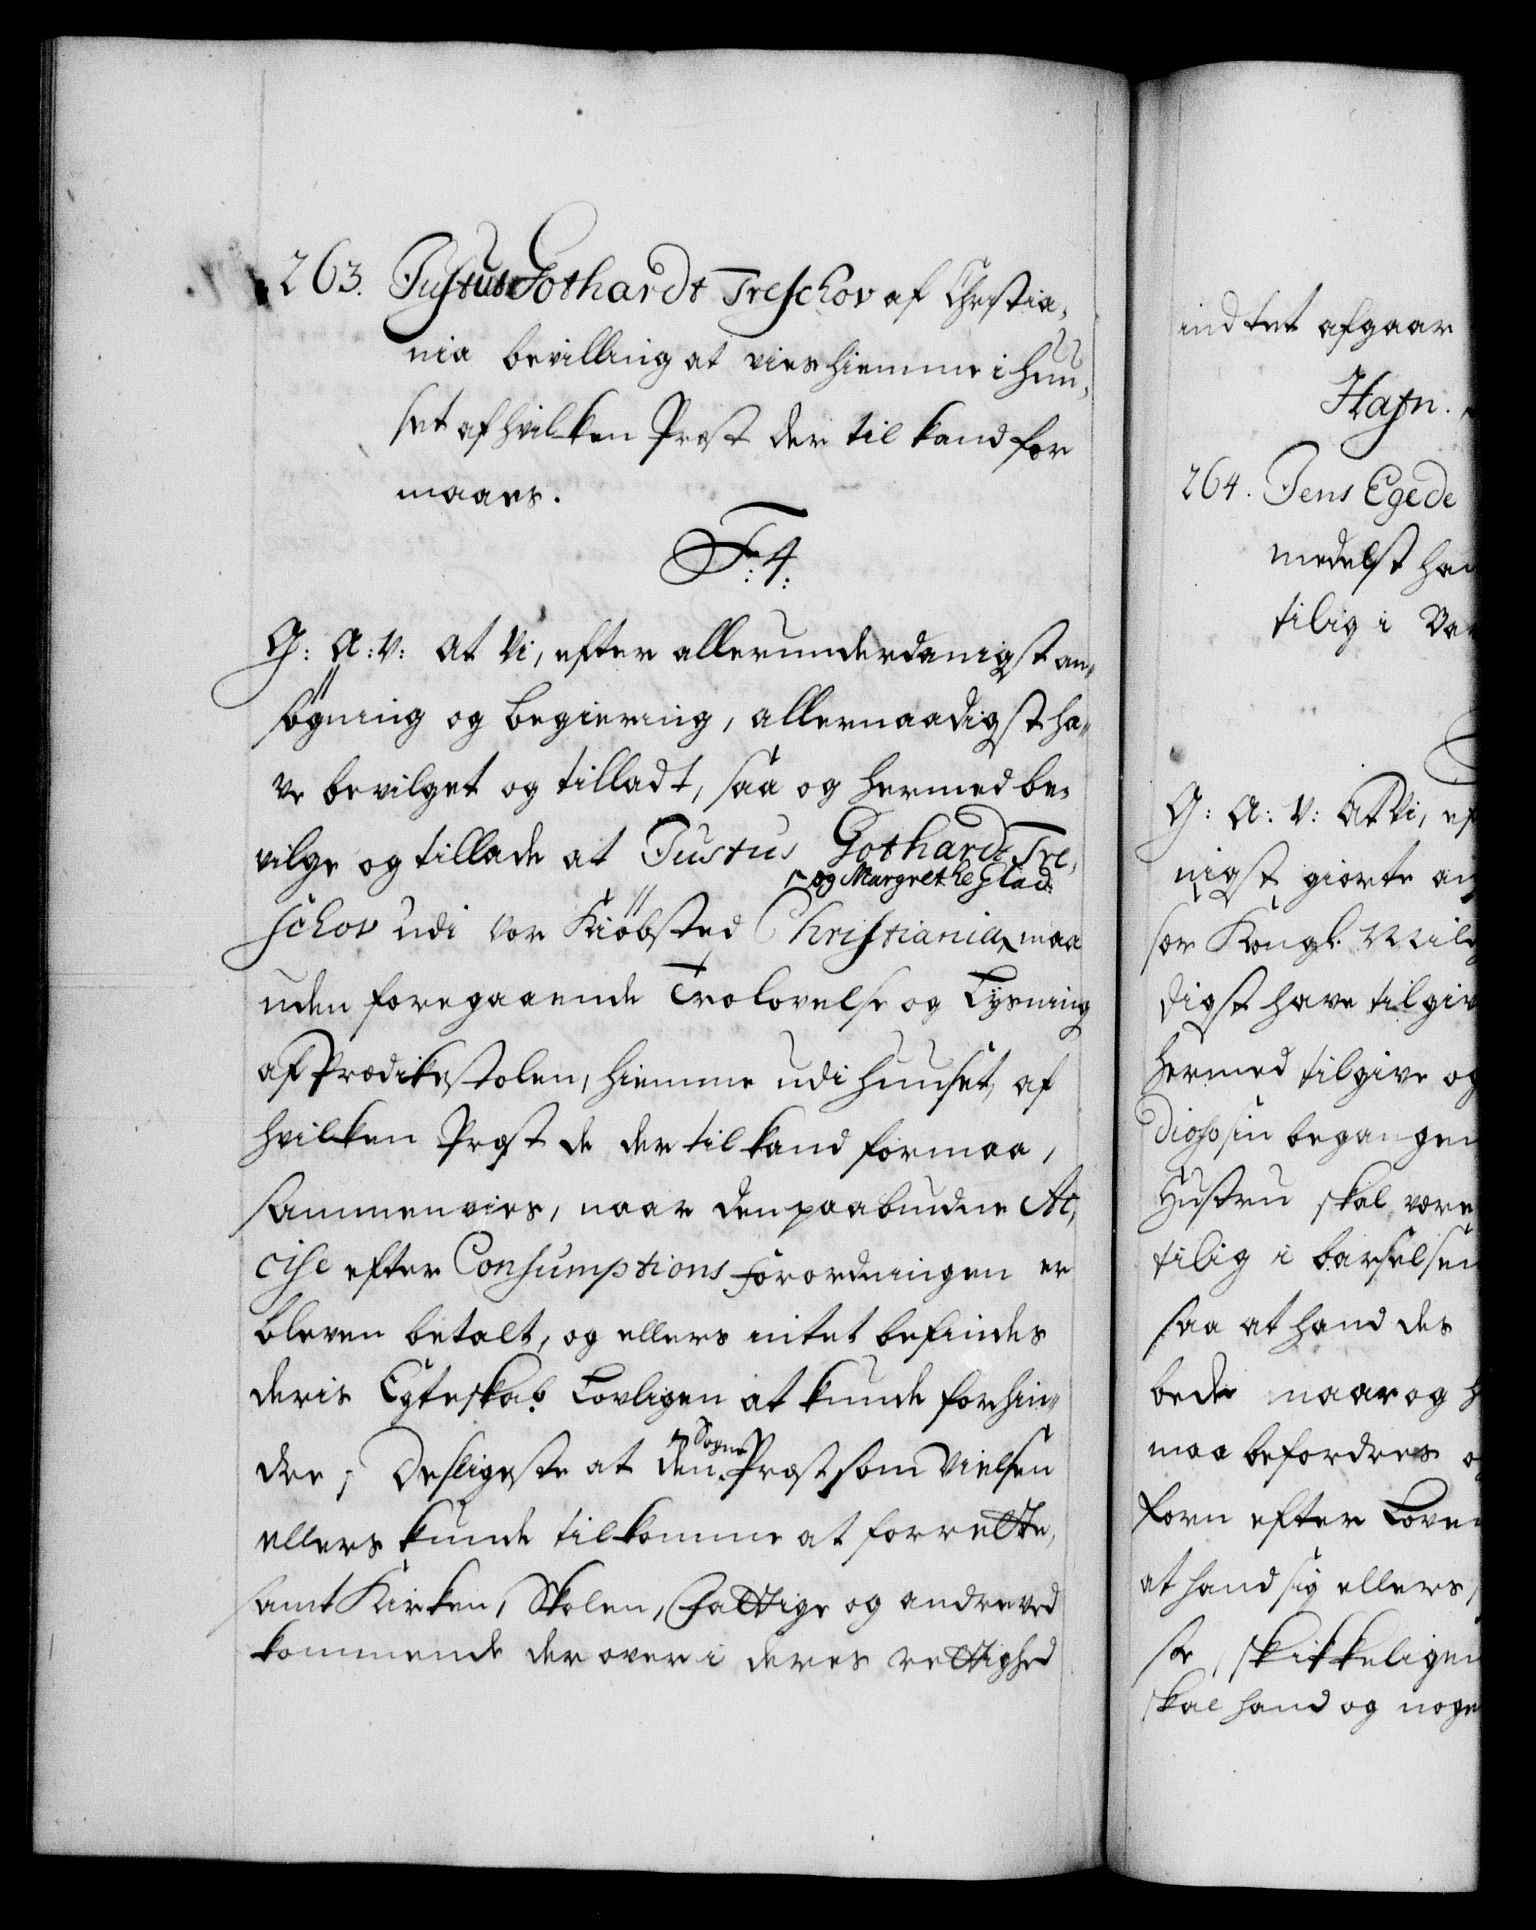 263. Justus Gothardt Treschov af Christia„
nia bevilling at vies hiemme i huu„
set af hvilken Præst der til kand for
maaes.
F: 4:
G: A: V: at Vi, efter allerunderdanigst an„
søgning og begiering, allernaadigst ha„
ve bevilget og tilladt, saa og hermed be„
vilge og tillade at Justus Gothardt Tre„
og Margrethe Glad
schov udi vor Kiøbsted Christiania maa
uden foregaaende Trolovelse og Lysning
af Prædikestolen, hiemme udi huuset, af
hvilken Præst de der til kand formaa,
sammenvies, naar den paabudne Ac„
cise efter Consumptions Forordningen er
bleven betalt, og ellers intet befindes
deris Egteskab Lovligen at kunde forhin„
dre; Desligeste at den Præst som Vielsen
Sogne
ellers kunde tilkomme at forrette,
samt Kirken, Skolen, Fattige og andre ved
kommende der over i deres rettighed
indtet afgaar
Hafn.
264. Jens Egede
medelst han
tilig i Bar
G: A: V: At Vi, ef
nigst giorte an
sær Kongl. Mild
digst have tilgiv
hermed tilgive og
begangen
Hustru skal være
tilig i barselsen
saa at hand des
bede naar og h
maa befordres o
forn efter Loven
at hand sig ellers
se, skikkeligen
skal hand og noge